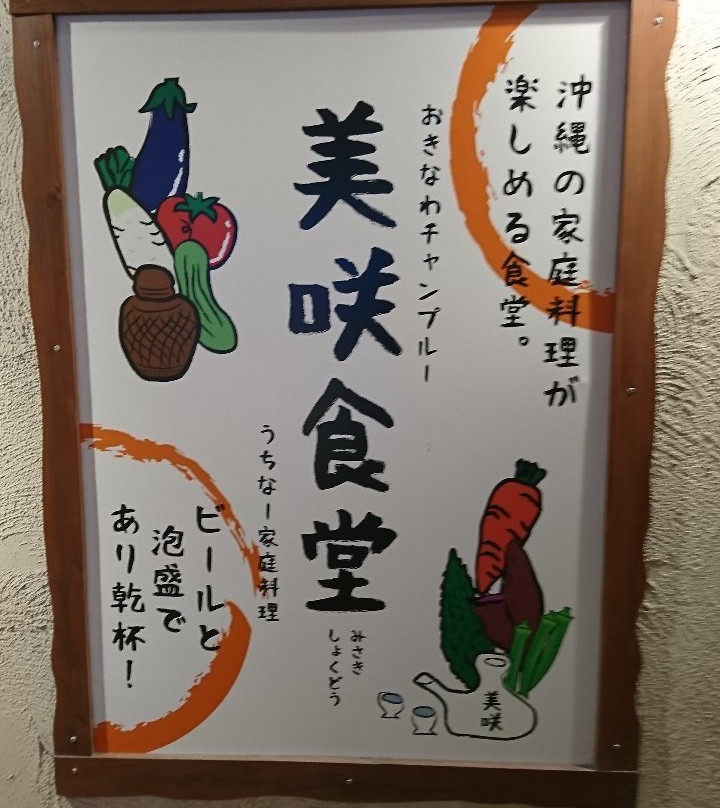 沖縄の家庭料理が
楽しめる食堂。
おきなわチャンプルー
美咲食堂
みさき
しょくどう
うちなー家庭料理
ビールと
泡盛で
あり乾杯！
美咲